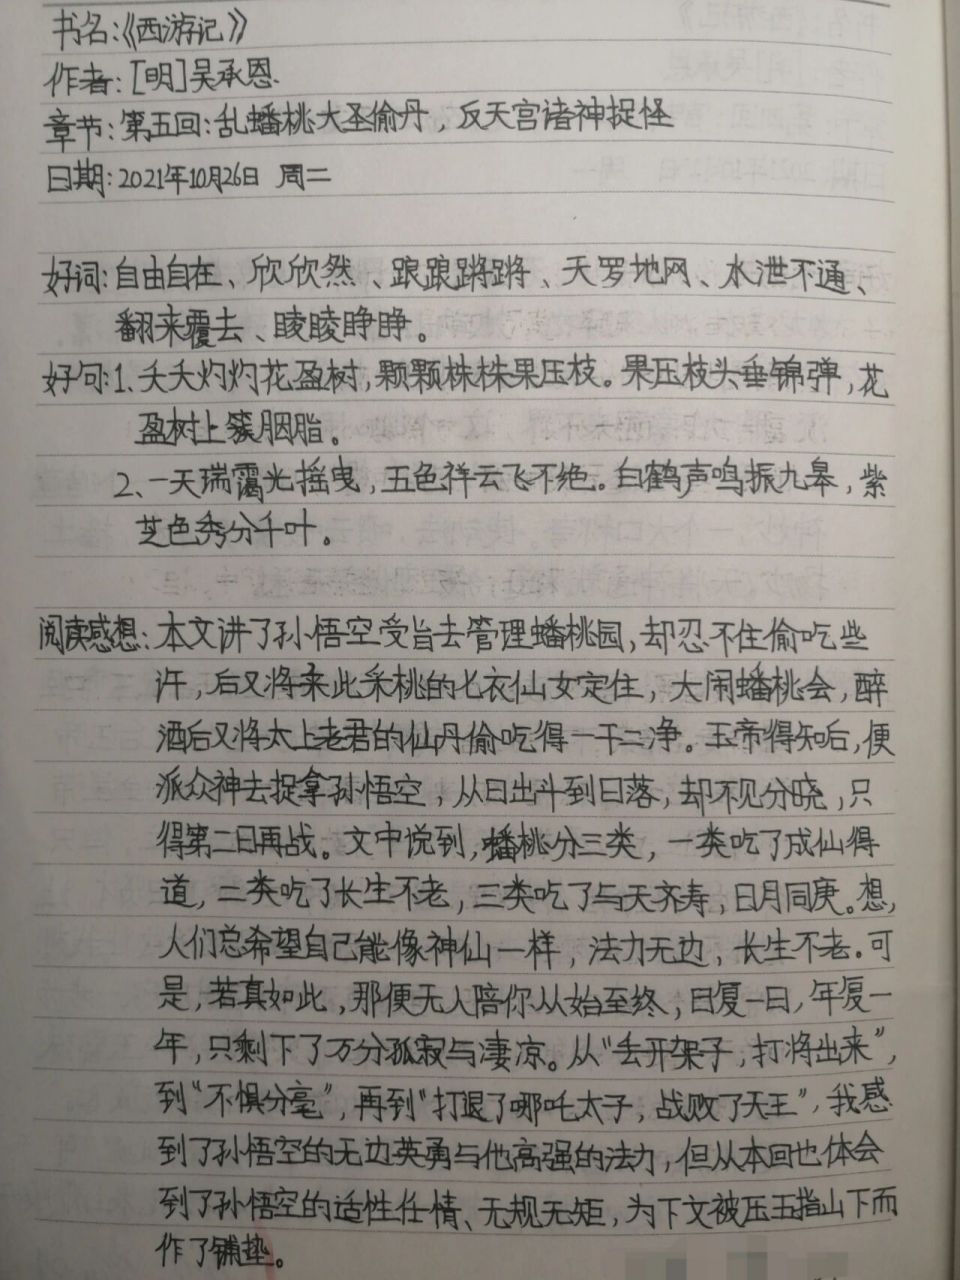 书名:《西游记》
作者:[明]吴承恩.
章节:第五回:乱蟠桃大圣偷丹,反天宫诸神捉怪
日期:2021年10月26日 周二
好词:自由自在、欣欣然、踉踉蹡蹡、天罗地网、水泄不通、
翻来覆去、睖睖睁睁。
好句:1、夭夭灼灼花盈树,颗颗株株果压枝。果压枝头垂锦弹,花
盈树上簇胭脂。
2、一天瑞霭光摇曳,五色祥云飞不绝。白鹤声鸣振九皋,紫
芝色秀分千叶。
阅读感想:本文讲了孙悟空受旨去管理蟠桃园,却忍不住偷吃些
许,后又将来此采桃的七衣仙女定住,大闹蟠桃会,醉
酒后又将太上老君的仙丹偷吃得一干二净。玉帝得知后,便
派众神去捉拿孙悟空,从日出斗到日落,却不见分晓,只
得第二日再战。文中说到,蟠桃分三类,一类吃了成仙得
道,二类吃了长生不老,三类吃了与天齐寿,日月同庚。想,
人们总希望自己能像神仙一样,法力无边,长生不老。可
是,若真如此,那便无人陪你从始至终,日复一日,年复一
年,只剩下了万分孤寂与凄凉。从“丢开架子,打将出来”,
到“不惧分毫”,再到“打退了哪吒太子,战败了天王”,我感
到了孙悟空的无边英勇与他高强的法力,但从本回也体会
到了孙悟空的适性任情、无规无矩,为下文被压五指山下而
作了铺垫。